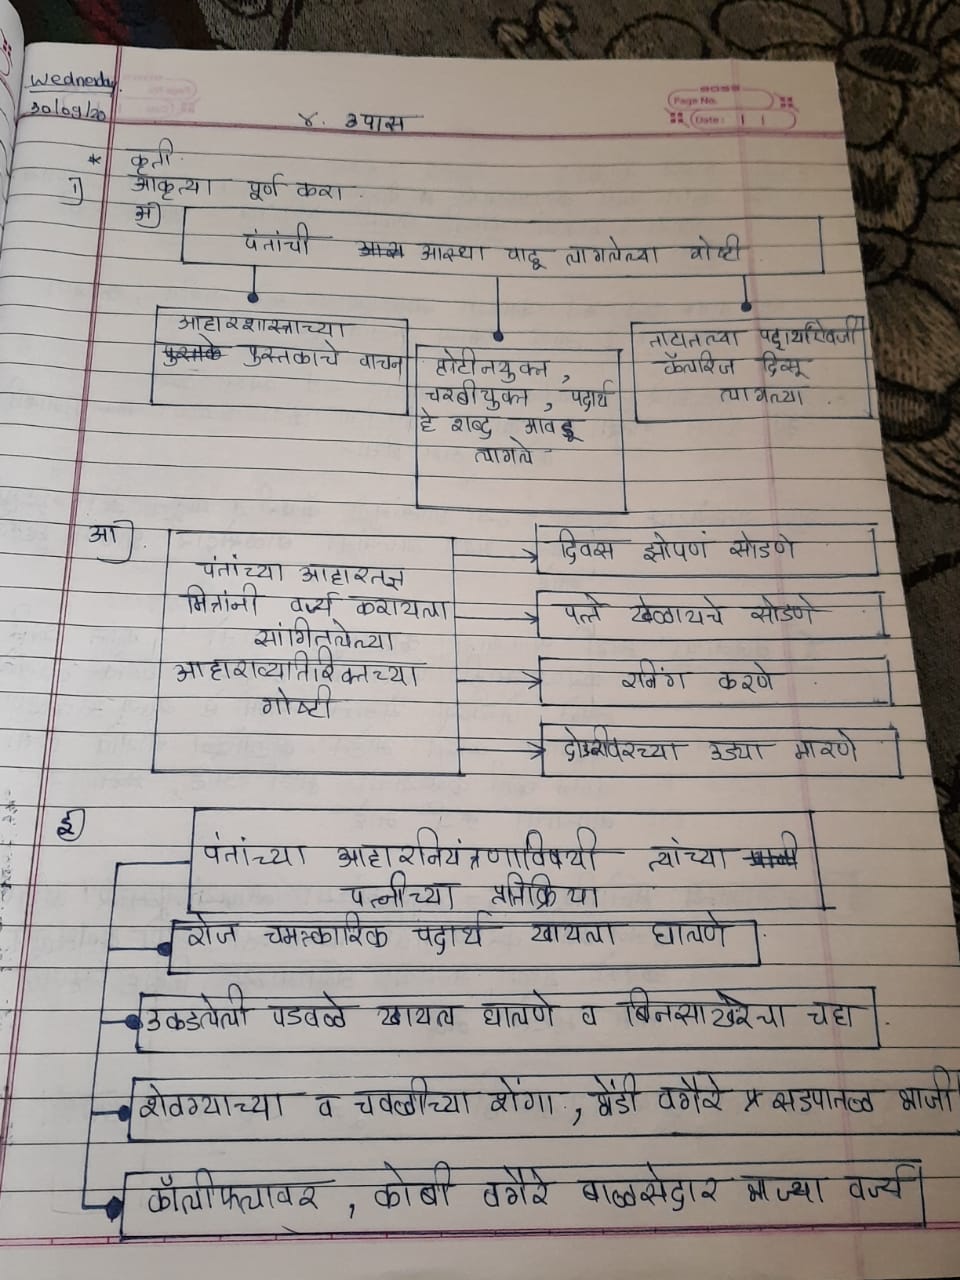 Wednesday
30/09/20
Page No.
Date:
४. उपास
* कृती.
१) आकृत्या पूर्ण करा.
अ)
पंतांची आस्था वाटू लागलेल्या गोष्टी
आहारशास्त्राच्या
पुस्तके पुस्तकाचे वाचन
प्रोटीनयुक्त,
चरबीयुक्त, पदार्थ
हे शब्द आवडू
लागले
ताटातल्या पदार्थांऐवजी
कॅलरिज दिसू
लागल्या.
आ)
पंतांच्या आहारतज्ञ
मित्रांनी वर्ज्य करायला
सांगितलेल्या
आहाराव्यातिरिक्तच्या
गोष्टी
दिवस झोपणं सोडणे
पत्ते खेळायचे सोडणे
रनिंग करणे
दोऊरीवरच्या उड्या मारणे
ई)
पंतांच्या आहारनियंत्रणाविषयी त्यांच्या
पत्नीच्या प्रतिक्रिया
रोज चमत्कारिक पदार्थ खायला घालणे
उकडलेली पडवळे खायल घालणे व बिनसाखरेचा चहा
शेवग्याच्या व चवळीच्या शेंगा, भेंडी वगैरे सडपातळ भाजी
कॉलीफ्लावर, कोबी वगैरे बाळसेदार भाज्या वर्ज्य